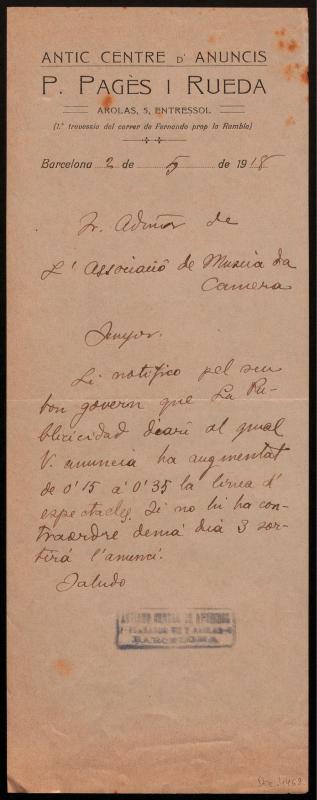 ANTIC CENTRE D'ANUNCIS
P. PAGÈS I RUEDA
AROLAS, 5, ENTRESSOL
(1.ª travessia del carrer de Fernando prop la Rambla)
Barcelona 2 de 5 de 1918
Sr. Admor de
L'Associació de Musica da
Camera
Senyor.
Li notifico pel seu
bon govern que La Pu-
blicidad diari al qual
V. anuncia ha augmentat
de 0'15 á 0'35 la linea d'
espectacles. Si no hi ha con-
traordre demá dia 3 sor-
tirá l'anunci.
Saludo
ANTIGUO CENTRO DE ANUNCIOS
BARCELONA